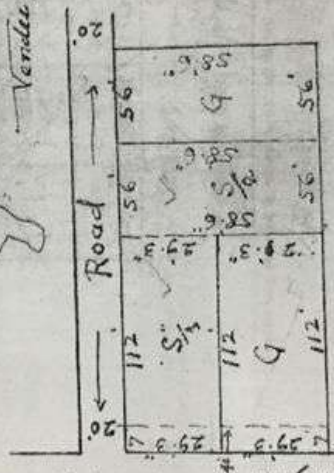 Vendee
20'
Road
58'6"
56
G
56'
58'6"
56
S/2
56'
58'6"
29'.3"
29'.3"
112
S/3
112
G
112'
20'
7
29'.3"
29'.3"
7